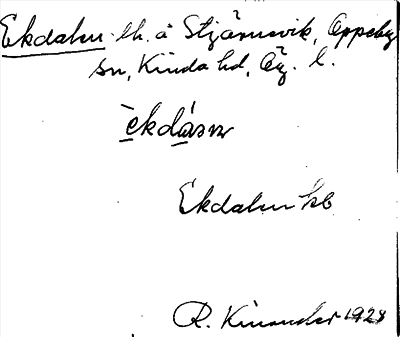 Ekdalen lh. å Stjärnevik, Oppeby
sn, Kinda hd, Ög. l.
èkdán
Ekdalen hb
R. Kinander 1928